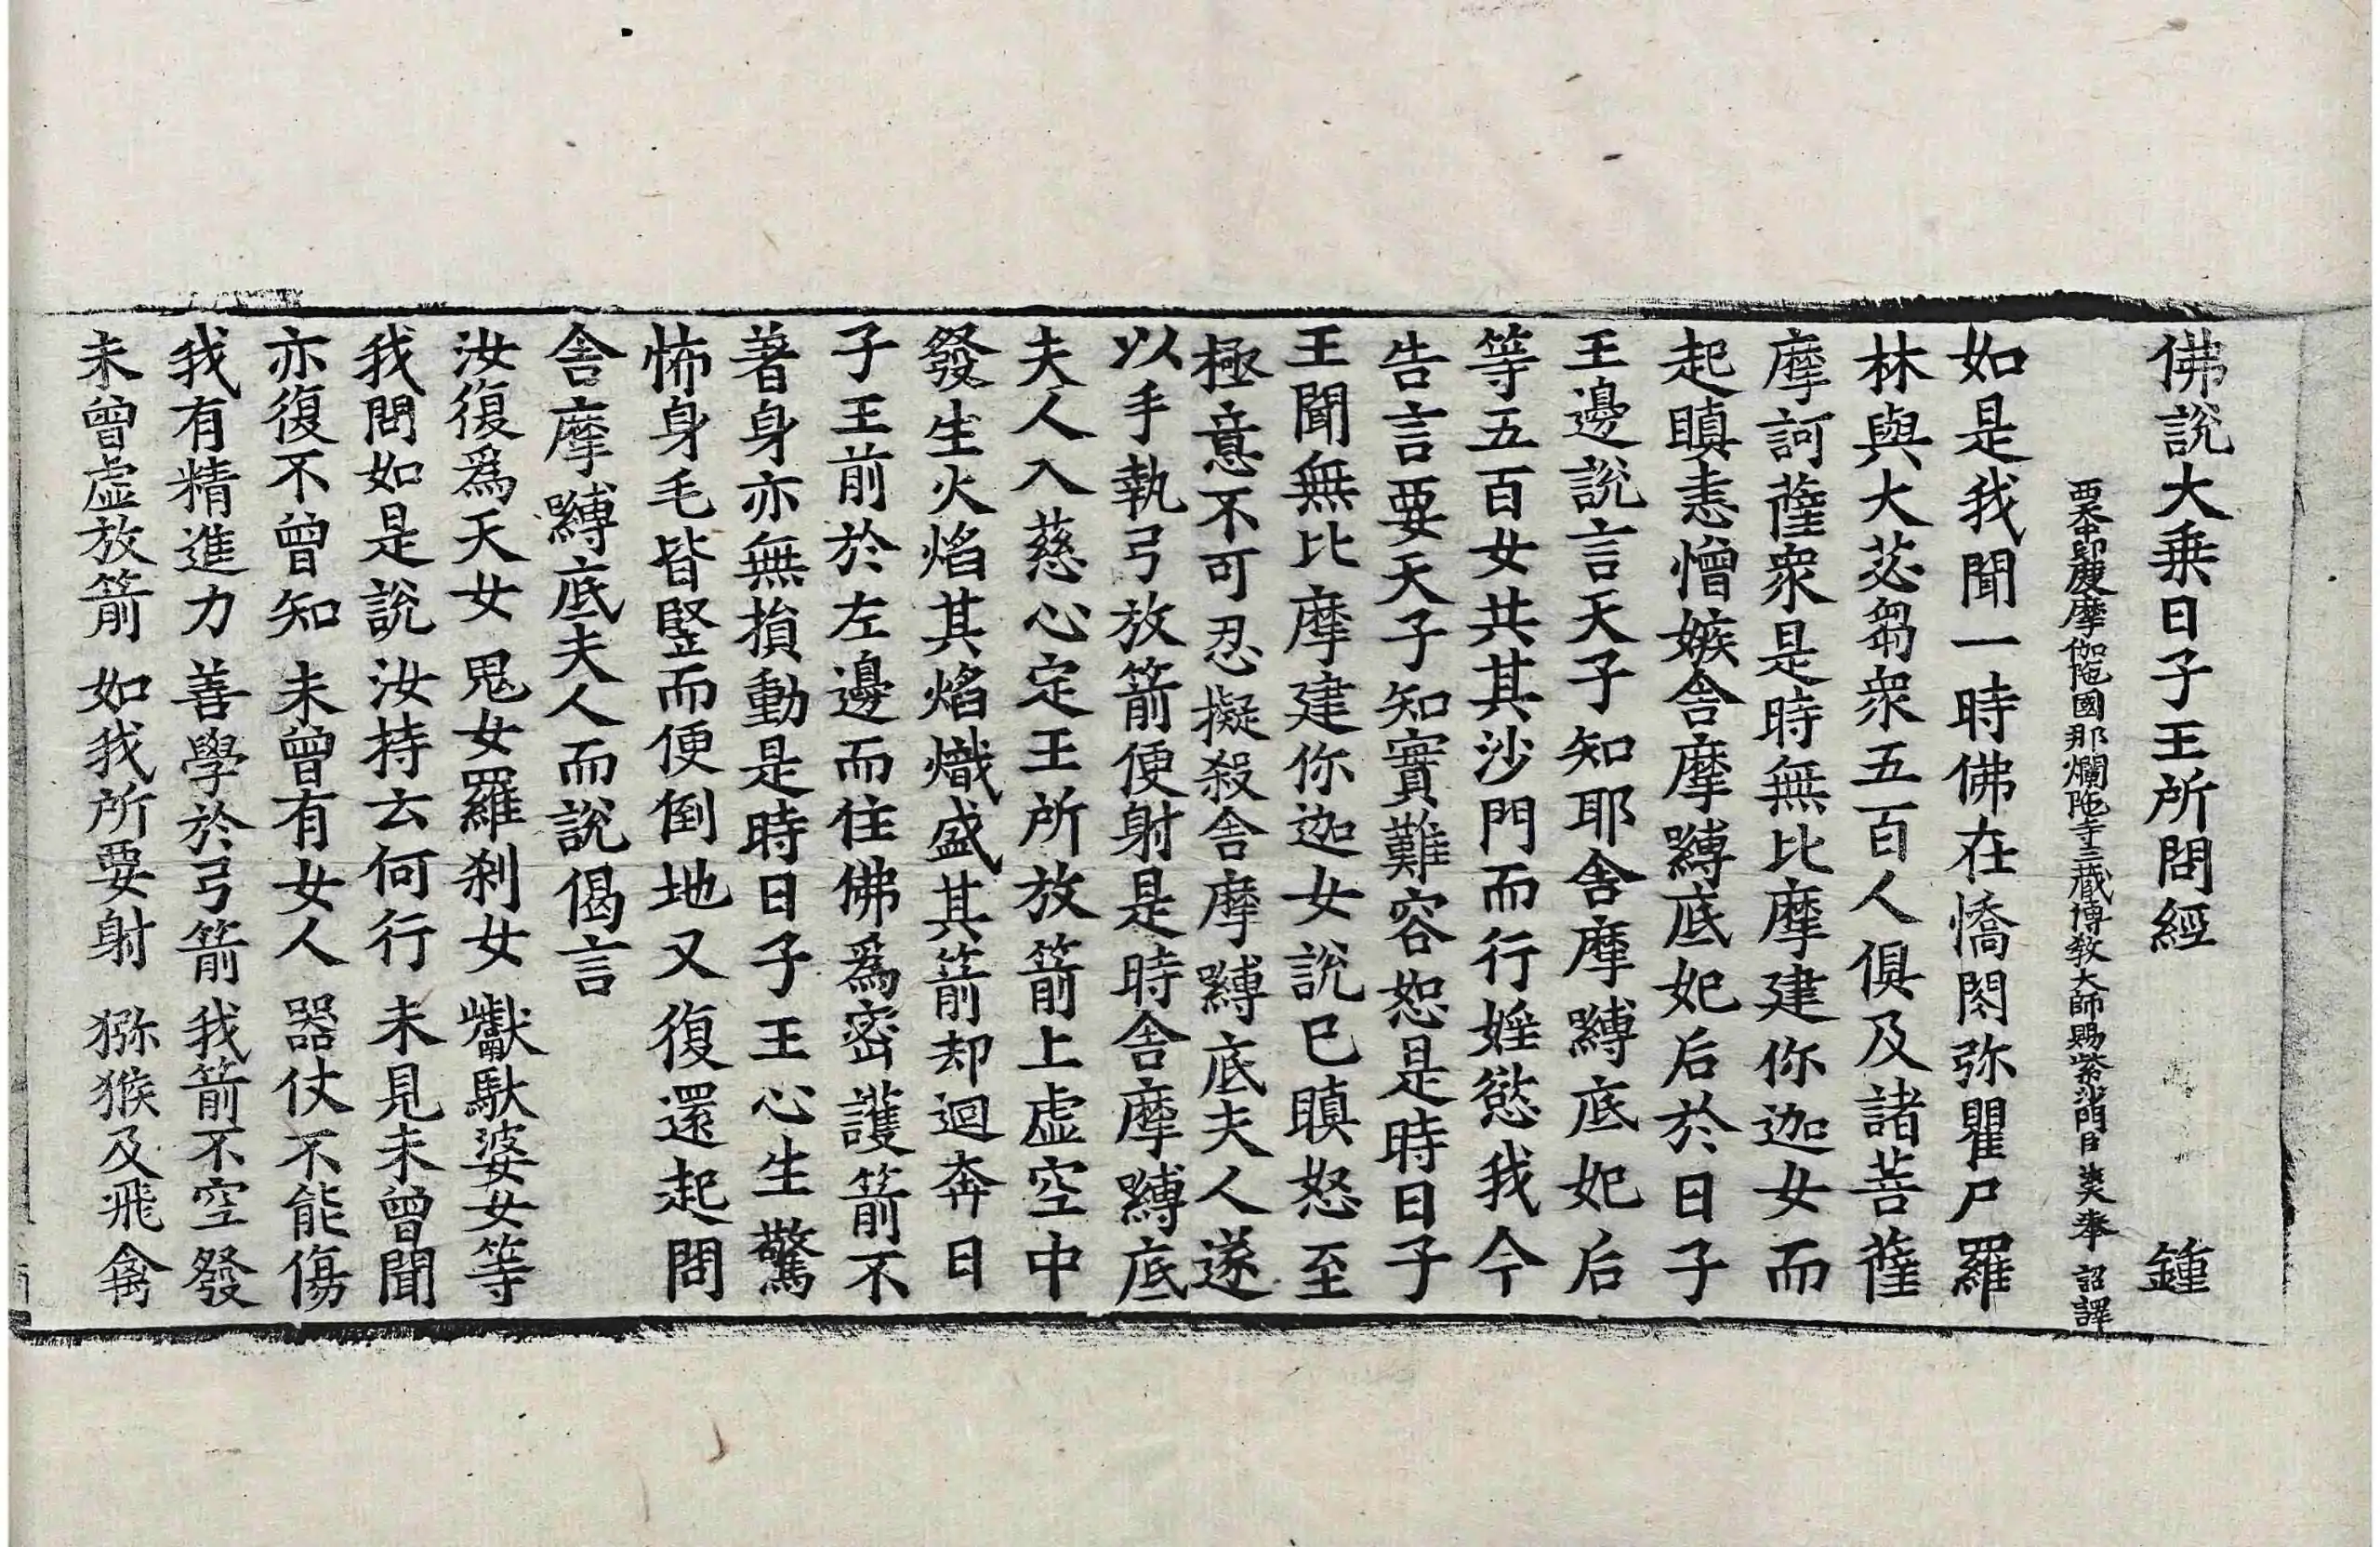 佛說大乘日子王所問經 鍾
西天中印度摩伽陁國那爛陁寺三藏傳教大師賜紫沙門臣法天奉 詔譯
如是我聞一時佛在憍閃弥瞿尸羅
林與大苾芻衆五百人俱及諸菩薩
摩訶薩衆是時無比摩建你迦女而
起瞋恚憎嫉舎摩嚩底妃后於日子
王邊說言天子知耶舎摩嚩底妃后
等五百女共其沙門而行婬慾我今
告言要天子知實難容恕是時日子
王聞無比摩建你迦女說已瞋怒至
極意不可忍擬殺舎摩嚩底夫人遂
以手執弓放箭便射是時舎摩嚩底
夫人入慈心定王所放箭上虚空中
發生火焰其焰熾盛其箭却迴奔日
子王前於左邊而住佛爲密護箭不
著身亦無損動是時日子王心生驚
怖身毛皆竪而便倒地又復還起問
舎摩嚩底夫人而說偈言
汝復爲天女 鬼女羅刹女 巘馱婆女等
我問如是說 汝持去何行 未見未曾聞
亦復不曾知 未曾有女人 器仗不能傷
我有精進力 善學於弓箭 我箭不空發
未曾虚放箭 如我所要射 猕猴及飛禽